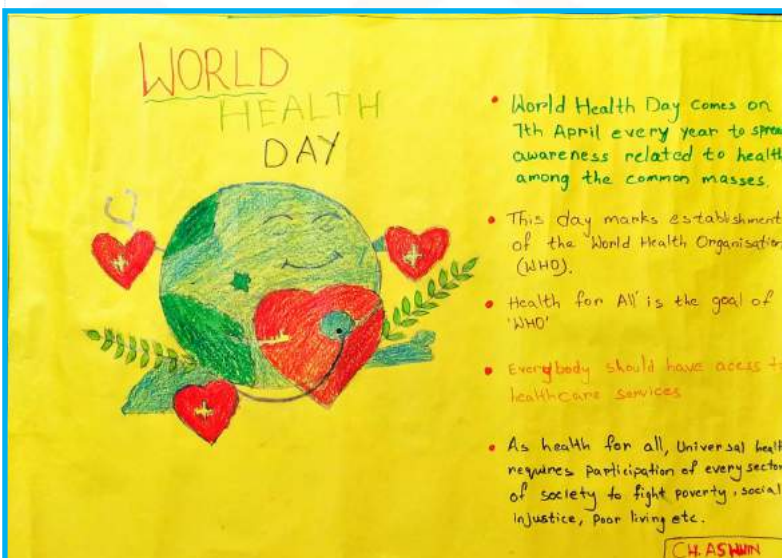 WORLD
HEALTH
DAY
• World Health Day comes on
7th April every year to sprea
awareness related to health
among the common masses.
• This day marks establishment
of the World Health Organisation
(WHO).
• Health for All' is the goal of
'WHO'
• Everybody should have acess to
healthcare services
• As health for all, Universal healt
requires participation of every sector
of society to fight poverty, social
injustice, poor living etc.
CH. ASHWIN